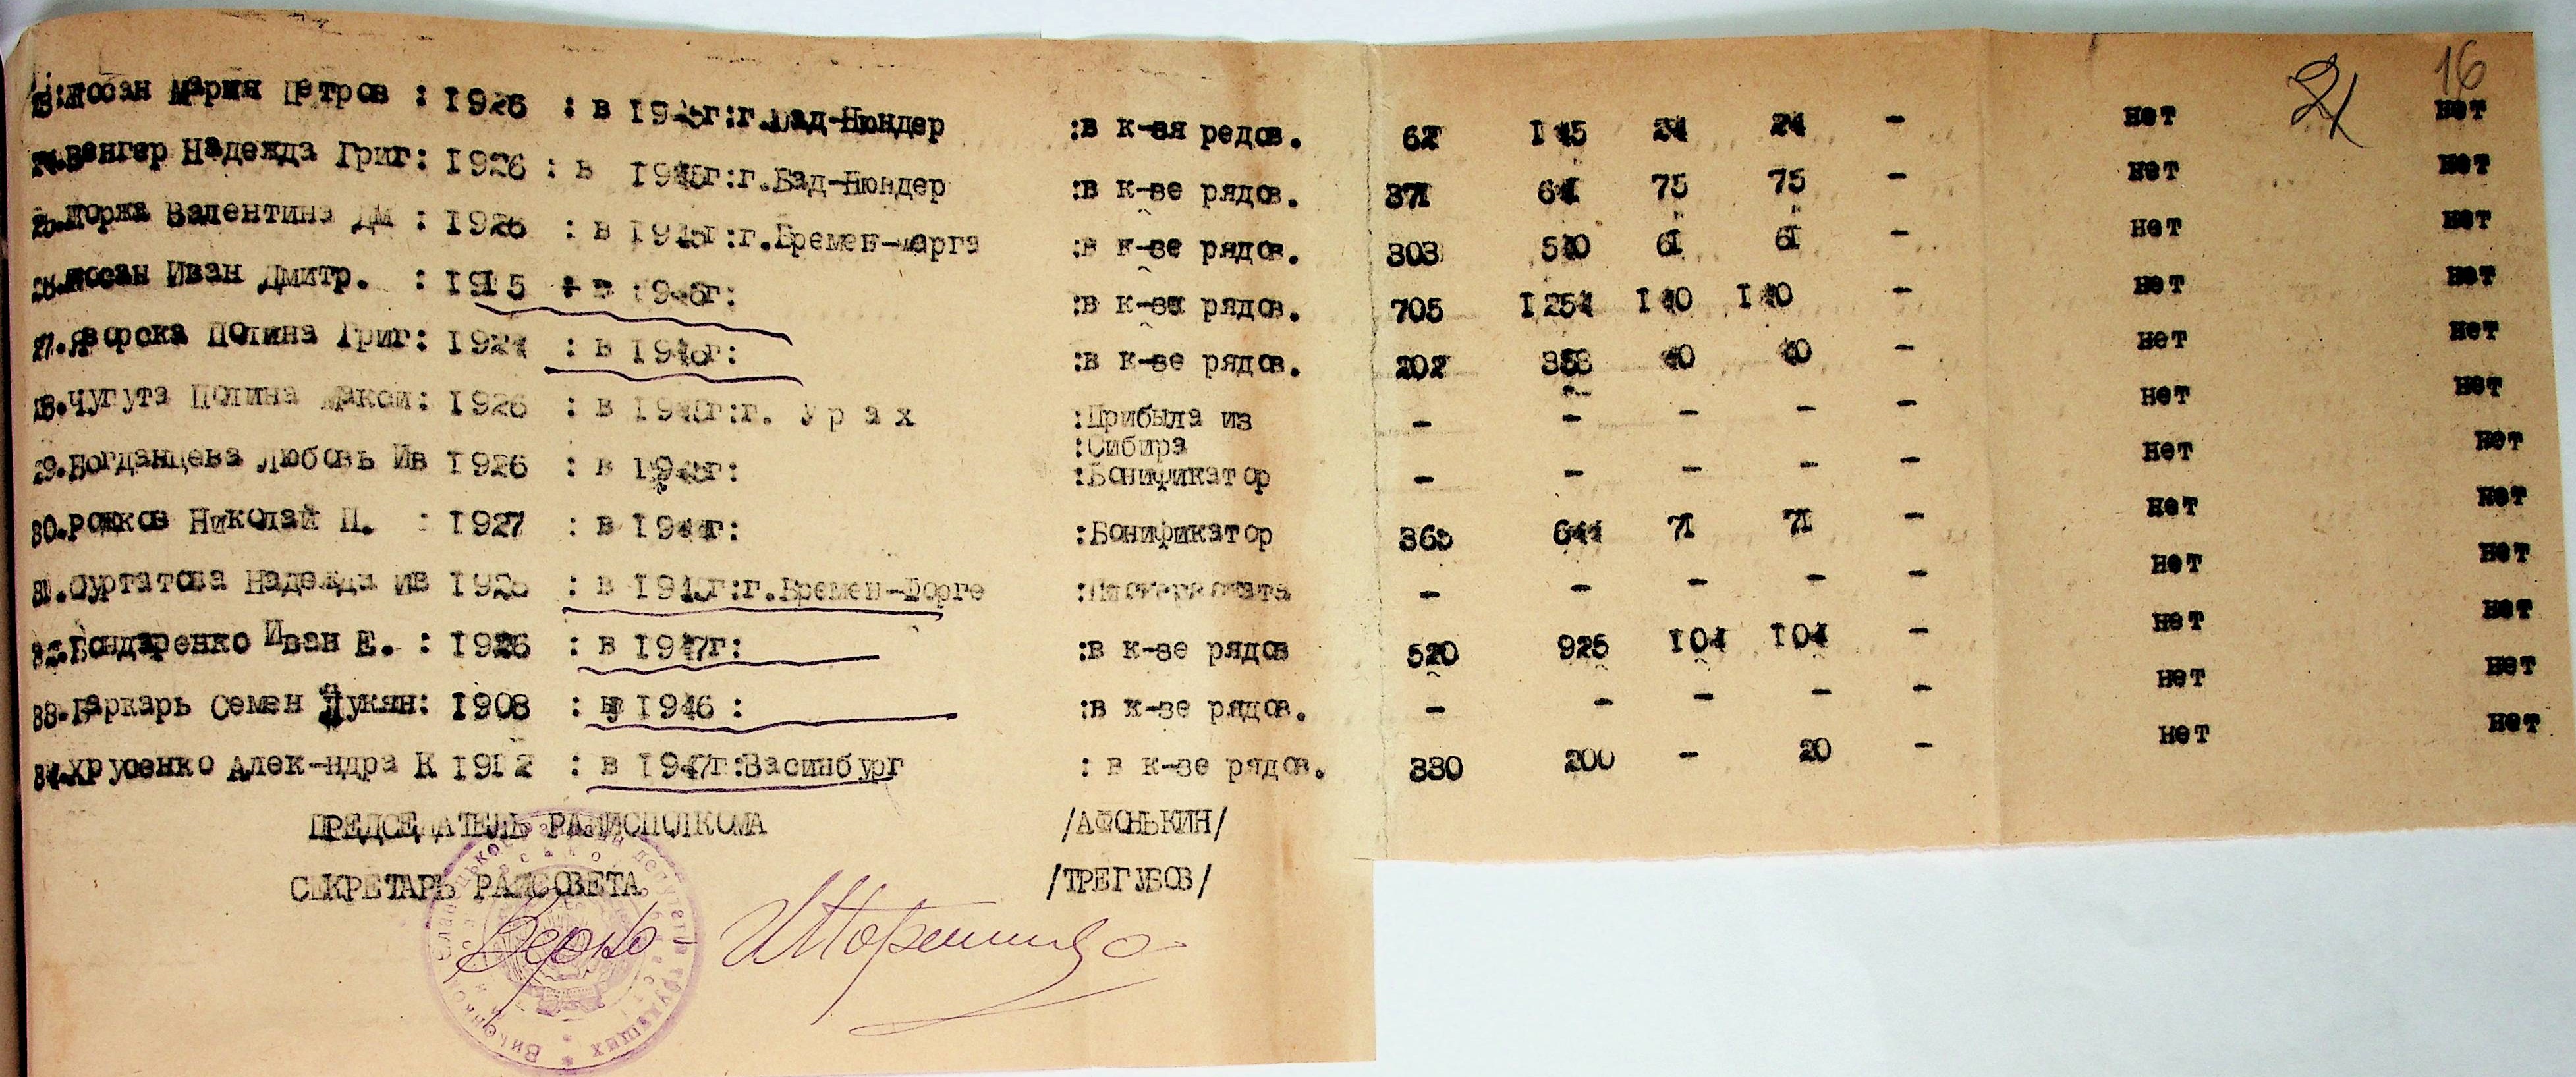 21 16
Мария Петров : 1926 : в 1945г:г.Бад-Нюндер :в к-зя редов. 62 145 24 24 - нет нет
24.Венгер Надежда Григ: 1926 : в 1945г:г.Бад-Нюндер :в к-зе рядов. 371 661 75 75 - нет нет
25. Валентина Дм : 1926 : в 1945г:г.Бремен- :в к-зе рядов. 303 540 61 61 - нет нет
26. Иван Дмитр. : 1915 в 1946г: :в к-зя рядов. 705 1254 140 140 - нет нет
27.Яворска Полина Григ: 1924 : в 1946г: :в к-зе рядов. 202 358 40 40 - нет нет
28.Чугута Полина Макси: 1926 : в г:г. У р а х :Прибыла из - - - - - нет нет
:Сибира
29.Богданцева Любовь Ив 1926 : в 1945г: :Бонификатор - - - - - нет нет
30.Рожков Николай П. : 1927 : в 1944г: :Бонификатор 365 644 71 71 - нет нет
31.Суртатова Надежда Ив 1926 : в г:г.Бремен-Форге - - - - - нет нет
32.Бондаренко Иван Е. : 1926 : в 1947г: :в к-зе рядов 520 925 104 104 - нет нет
33.Гаркарь Семен Лукян: 1908 : в 1946 : :в к-зе рядов. - - - - - нет нет
34.Хрусенко Алек-ндра К 1912 : в 1947г:Васинбург : в к-зе рядов. 330 200 - 20 - нет нет
ПРЕДСЕДАТЕЛЬ РАЙИСПОЛКОМА /АФОНЬКИН/
СЕКРЕТАРЬ РАЙСОВЕТА /ТРЕГУБОВ/
Верно -